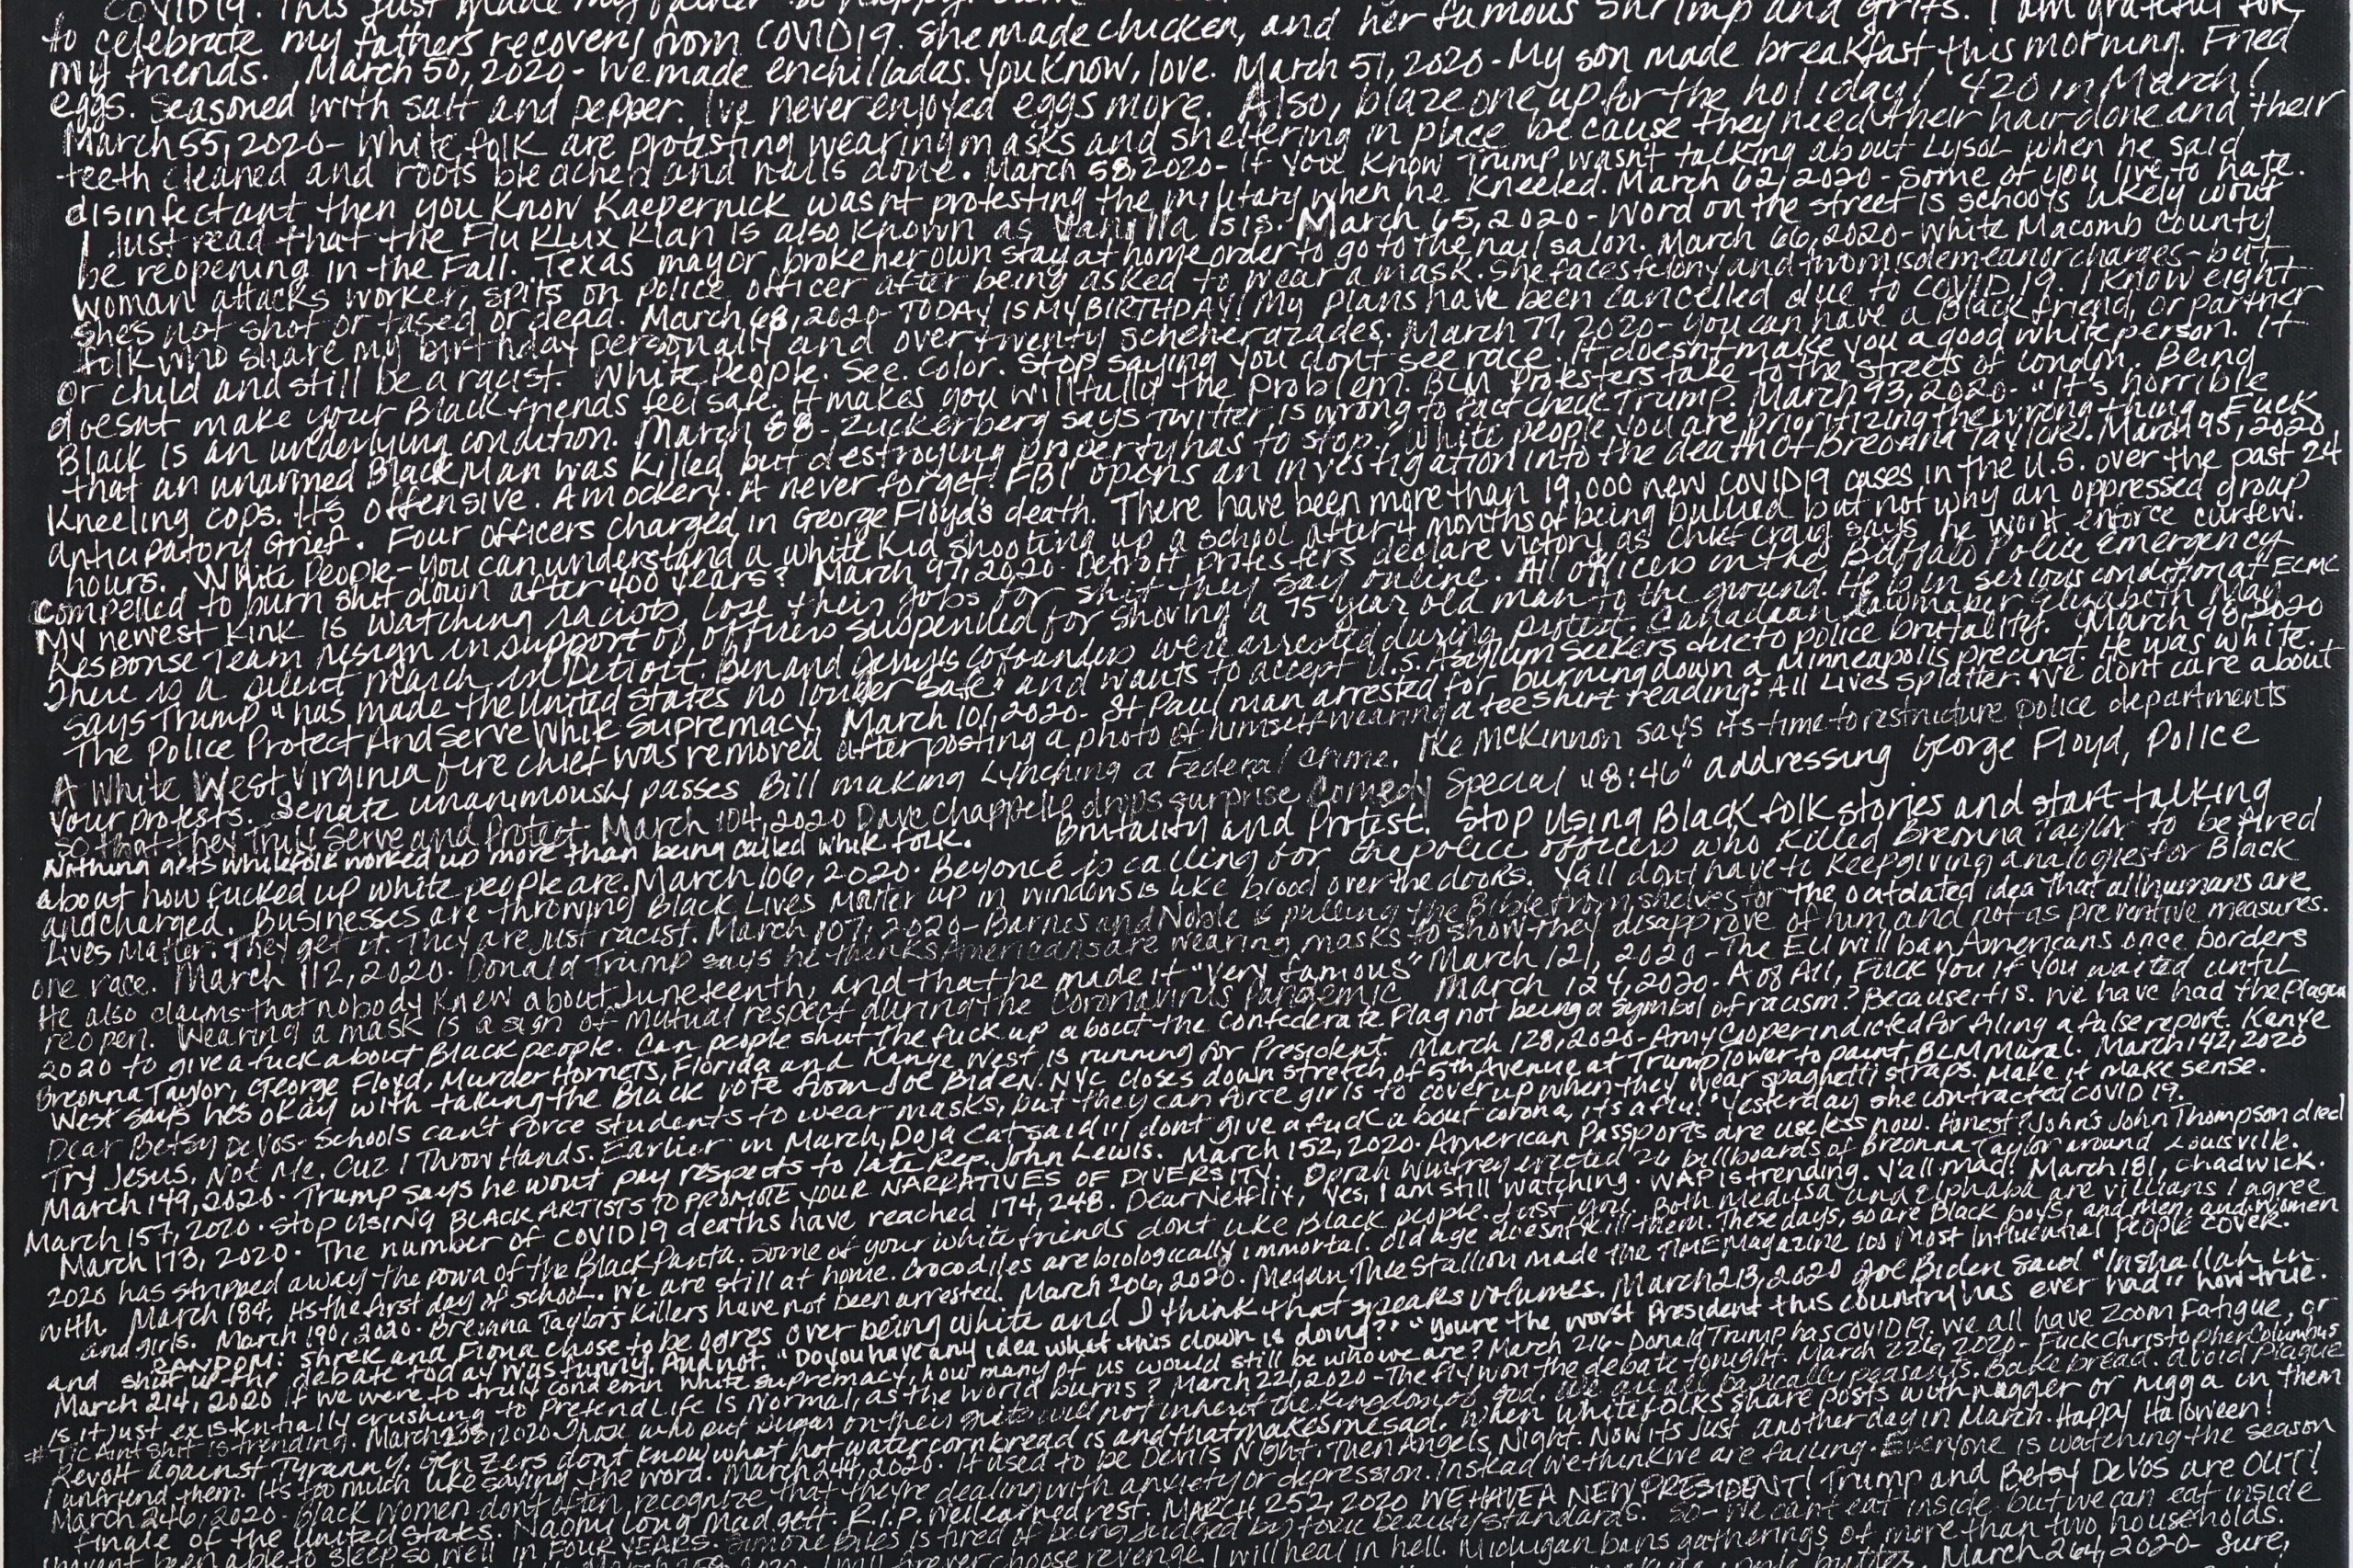 COVID19. This just made my father so happy.
to celebrate my fathers recovery from COVID19. She made chicken, and her famous shrimp and grits. I am grateful for
my friends. March 50, 2020- We made enchilladas. You know, love. March 51, 2020- My son made breakfast this morning. Fried
eggs. Seasoned with salt and pepper. I've never enjoyed eggs more. Also, blaze one up for the holiday! 420 in March!
March 55, 2020- White folk are protesting wearing masks and sheltering in place because they need their hair done and their
teeth cleaned and roots bleached and nails done. March 58, 2020- If you know Trump wasn't talking about Lysol when he said
disinfectant then you know Kaepernick wasnt protesting the military when he kneeled. March 62, 2020- Some of you live to hate.
I just read that the Flu Klux Klan is also known as Vanilla Isis. March 65, 2020- Word on the street is schools likely wont
be reopening in the Fall. Texas mayor broke her own stay at home order to go to the nail salon. March 66, 2020- White Macomb County
woman attacks worker, spits on police officer after being asked to wear a mask. She faces felony and two misdemeanor charges- but
shes not shot or tased or dead. March 68, 2020- TODAY IS MY BIRTHDAY! My plans have been cancelled due to COVID19. I know eight
folk who share my birthday personally and over twenty scheherazades. March 77, 2020- You can have a Black friend, or partner
or child and still be a racist. White People. See. Color. Stop saying you dont see race. It doesnt make you a good white person. It
doesnt make your Black friends feel safe. It makes you willfully the problem. BLM Protesters take to the streets of London. Being
Black is an underlying condition. March 88- Zuckerberg says Twitter is wrong to fact check Trump. March 93, 2020- "It's horrible
that an unarmed Black Man was killed but destroying property has to stop." White people you are prioritizing the wrong thing. Fuck
kneeling cops. Its offensive. A mockery. A never forget. FBI opens an investigation into the death of Breonna Taylor. March 95, 2020
anticipatory grief. Four officers charged in George Floyd's death. There have been more than 19,000 new COVID19 cases in the U.S. over the past 24
hours. White People- you can understand a white kid shooting up a school after 4 months of being bullied but not why an oppressed group
compelled to burn shit down after 400 years? March 97, 2020- Detroit protesters declare victory as Chief Craig says he wont enforce curfew.
My newest kink is watching racists lose their jobs for shit they say online. All officers in the Buffalo Police emergency
Response Team resign in support of officers suspended for shoving a 75 year old man to the ground. He is in serious condition at ECMC
There is a silent march in Detroit. Ben and Jerry's cofounders were arrested during protest. Canadaan Lawmaker Elizabeth May
says Trump "has made the United States no longer safe" and wants to accept U.S. Asylum Seekers due to police brutality. March 98, 2020
The Police Protect And Serve White Supremacy. March 101, 2020- St Paul man arrested for burning down a Minneapolis precinct. He was white.
A White West Virginia fire chief was removed after posting a photo of himself wearing a tee shirt reading: All Lives Splatter. We dont care about
your protests. Senate unanimously passes Bill making Lynching a Federal crime. Ike McKinnon says its time to restructure police departments
so that they Truly Serve and Protect. March 104, 2020 Dave Chappelle drops surprise Comedy Special "8:46" addressing George Floyd, Police
Nothing gets whitefolk worked up more than being called white folk. Brutality and Protest. Stop Using Black folk stories and start talking
about how fucked up white people are. March 106, 2020. Beyoncé is calling for the police officers who killed Breonna Taylor to be fired
and charged. Businesses are throwing Black Lives Matter up in windows like blood over the doors. Yall dont have to keep giving analogies for Black
Lives Matter. They get it. They are just racist. March 107, 2020- Barnes and Noble is pulling the Bible from shelves for the outdated idea that all humans are
one race. March 112, 2020. Donald Trump says he thinks Americans are wearing masks to show they disapprove of him and not as preventive measures.
He also claims that nobody knew about Juneteenth, and that he made it "very famous" March 121, 2020- The EU will ban Americans once borders
reopen. Wearing a mask is a sign of mutual respect during the Coronavirus Pandemic March 124, 2020. A of All, Fuck you if you waited until
2020 to give a fuck about Black people. Can people shut the fuck up about the Confederate Flag not being a symbol of racism? Because it is. We have had the plague
Breonna Taylor, George Floyd, Murder Hornets, Florida and Kanye West is running for President. March 128, 2020- Amy Cooper indicted for filing a false report. Kanye
West says hes okay with taking the Black vote from Joe Biden. NYC closes down stretch of 5th Avenue at Trump Tower to paint BLM Mural. March 142, 2020
Dear Betsy DeVos- Schools can't force students to wear masks, but they can force girls to cover up when they wear spaghetti straps. Make it make sense.
Try Jesus. Not Me. Cuz I Throw Hands. Earlier in March, Doja Cat said "I dont give a fuck about corona, its a flu." Yesterday she contracted COVID19.
March 149, 2020. Trump says he wont pay respects to late Rep. John Lewis. March 152, 2020. American Passports are useless now. Honest? John's John Thompson died
March 157, 2020. STOP USING BLACK ARTISTS TO PROMOTE YOUR NARRATIVES OF DIVERSITY. Oprah Winfrey erected 26 billboards of Breonna Taylor around Louisville.
March 173, 2020. The number of COVID19 deaths have reached 174,248. Dear Netflix, Yes, I am still watching. WAP is trending. Y'all mad? March 181, Chadwick.
2020 has stripped away the powa of the Black Panta. Some of your white friends dont like Black people. Just you. Both Medusa and Elphaba are villians I agree
with. March 184, its the first day of school. We are still at home. Crocodiles are biologically immortal. Old age doesnt kill them. These days, so are Black boys, and men, and women
and girls. March 190, 2020. Breonna Taylor's killers have not been arrested. March 206, 2020. Megan Thee Stallion made the TIME Magazine 100 Most Influential People cover.
RANDOM: Shrek and Fiona chose to be ogres over being white and I think that speaks volumes. March 213, 2020 Joe Biden said "Inshallah in
and shut up the debate today was funny. And not. "Do you have any idea what this clown is doing?" "youre the worst President this country has ever had" how true.
March 214, 2020 If we were to truly condemn white supremacy, how many of us would still be who we are? March 216- Donald Trump has COVID19. We all have Zoom Fatigue, or
is it just existentially crushing to Pretend Life is Normal, as the world burns? March 221, 2020- The fly won the debate tonight. March 226, 2020- Fuck Christopher Columbus
#TICAintShit is trending. March 238, 2020 Those who put sugar on their grits will not inherit the kingdom of God. We are all basically peasants. Bake bread. avoid Plague
Revolt against Tyranny. Gen Zers dont know what hot water cornbread is and that makes me sad. When whitefolks share posts with nigger or nigga in them
I unfriend them. Its too much like saying the word. March 244, 2020. It used to be Devil's Night. Then Angels Night. Now its just another day in March. Happy Halloween!
March 246, 2020- Black women dont often recognize that they're dealing with anxiety or depression. Instead we think we are failing. Everyone is watching the season
finale of the United States. Naomi Long Madgett. R.I.P. Well earned rest. MARCH 252, 2020 WE HAVE A NEW PRESIDENT! Trump and Betsy DeVos are OUT!
I havent been able to sleep so well in FOUR YEARS. Simone Biles is tired of being judged by toxic beauty standards. So- We cant eat inside but we can eat inside
I will forever choose revenge. I will heal in hell. Michigan bans gatherings of more than two households.
March 264, 2020- Sure,